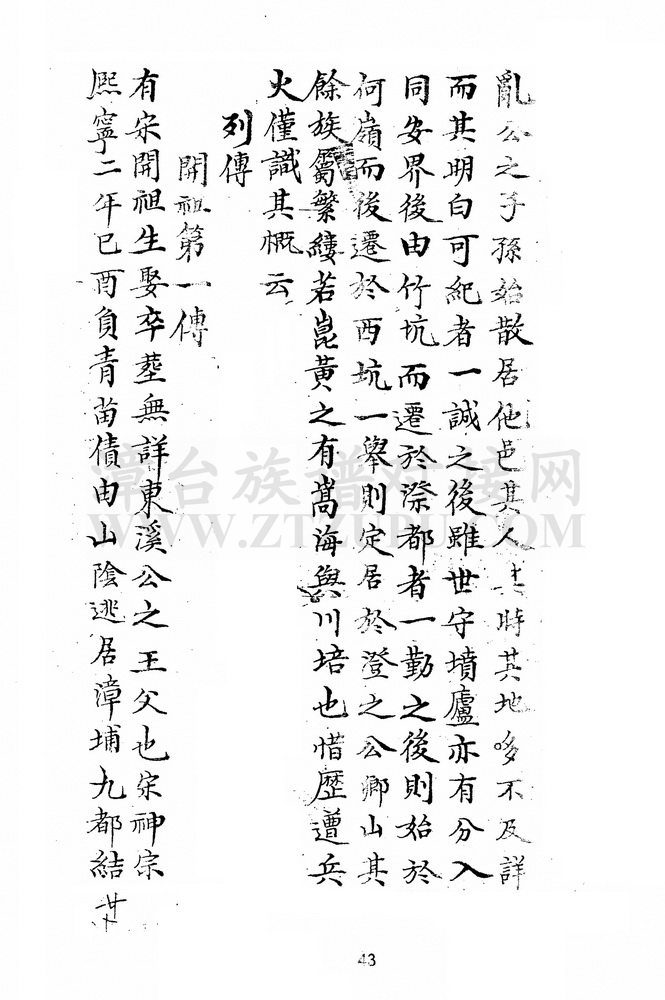 亂公之子孫始散居他邑其人其時其地多不及詳
而其明白可紀者一誠之後雖世守墳廬亦有分入
同安界後由竹坑而遷於漈都者一勤之後則始於
何嶺而後遷於西坑一舉則定居於澄之公卿山其
餘族屬繁縷若崑黃之有嵩海與川培也惜歷遭兵
火僅識其概云
列傳
開祖第一傳
有宋開祖生娶卒塟無詳東溪公之王父也宋神宗
熙寧二年巳酉負青苗債由山陰逃居漳埔九都結
漳台族谱对接网
WWW.ZTZUPU.COM
43